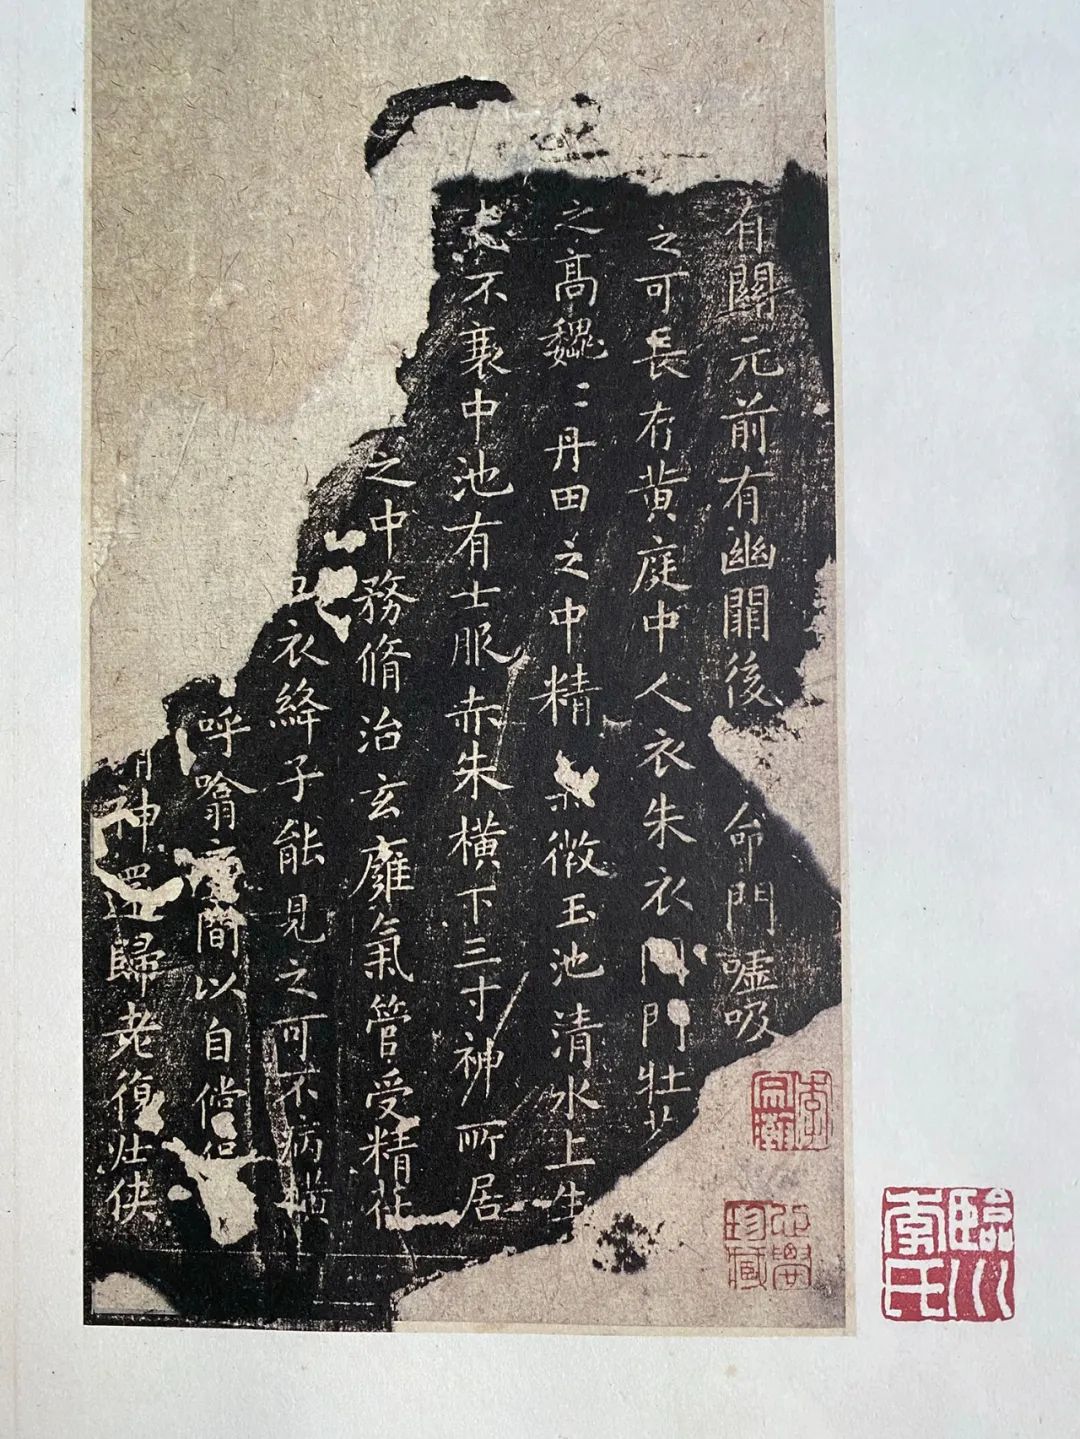 有關元前有幽闕後命門噓吸
之可長存黃庭中人衣朱衣門牡
之高魏〻丹田之中精微玉池清水上生
不衰中池有士服赤朱橫下三寸神所居
之中務脩治玄𪷟氣管受精
衣絳子能見之可不病橫
呼噏間以自償
神還歸老復壯俠
李宗瀚
珍藏
臨川李氏